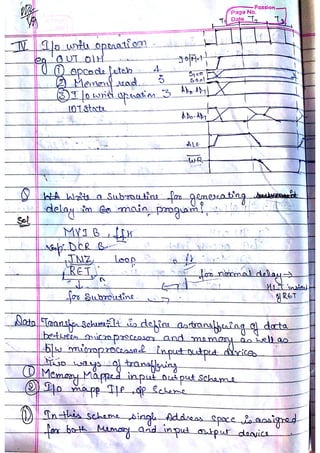 Page No.
Date
T1 T2 T3
IV I/o write operation
eg OUT 01H
① opcode fetch 4
② Memory read 3
③ I/o write operation 3
10T State
IO/M=1
AD0-AD7
ALE
WR
Q Write a Subroutine for generating
delay in Go main program?
Sol
MVI B, ffH
loop: DCR B
JNZ loop
RET
for normal delay →
HLT instead
of RET
for Subroutine
Data Transfer Scheme It is define as transfering of data
between microprocessor and memory as well as
b/w microprocessor Input output devices
Two ways of transfering
① Memory Mapped input output scheme
② I/O mapp I/P, OP Scheme
① In this scheme single Address space is assigned
for both Memory and input output device